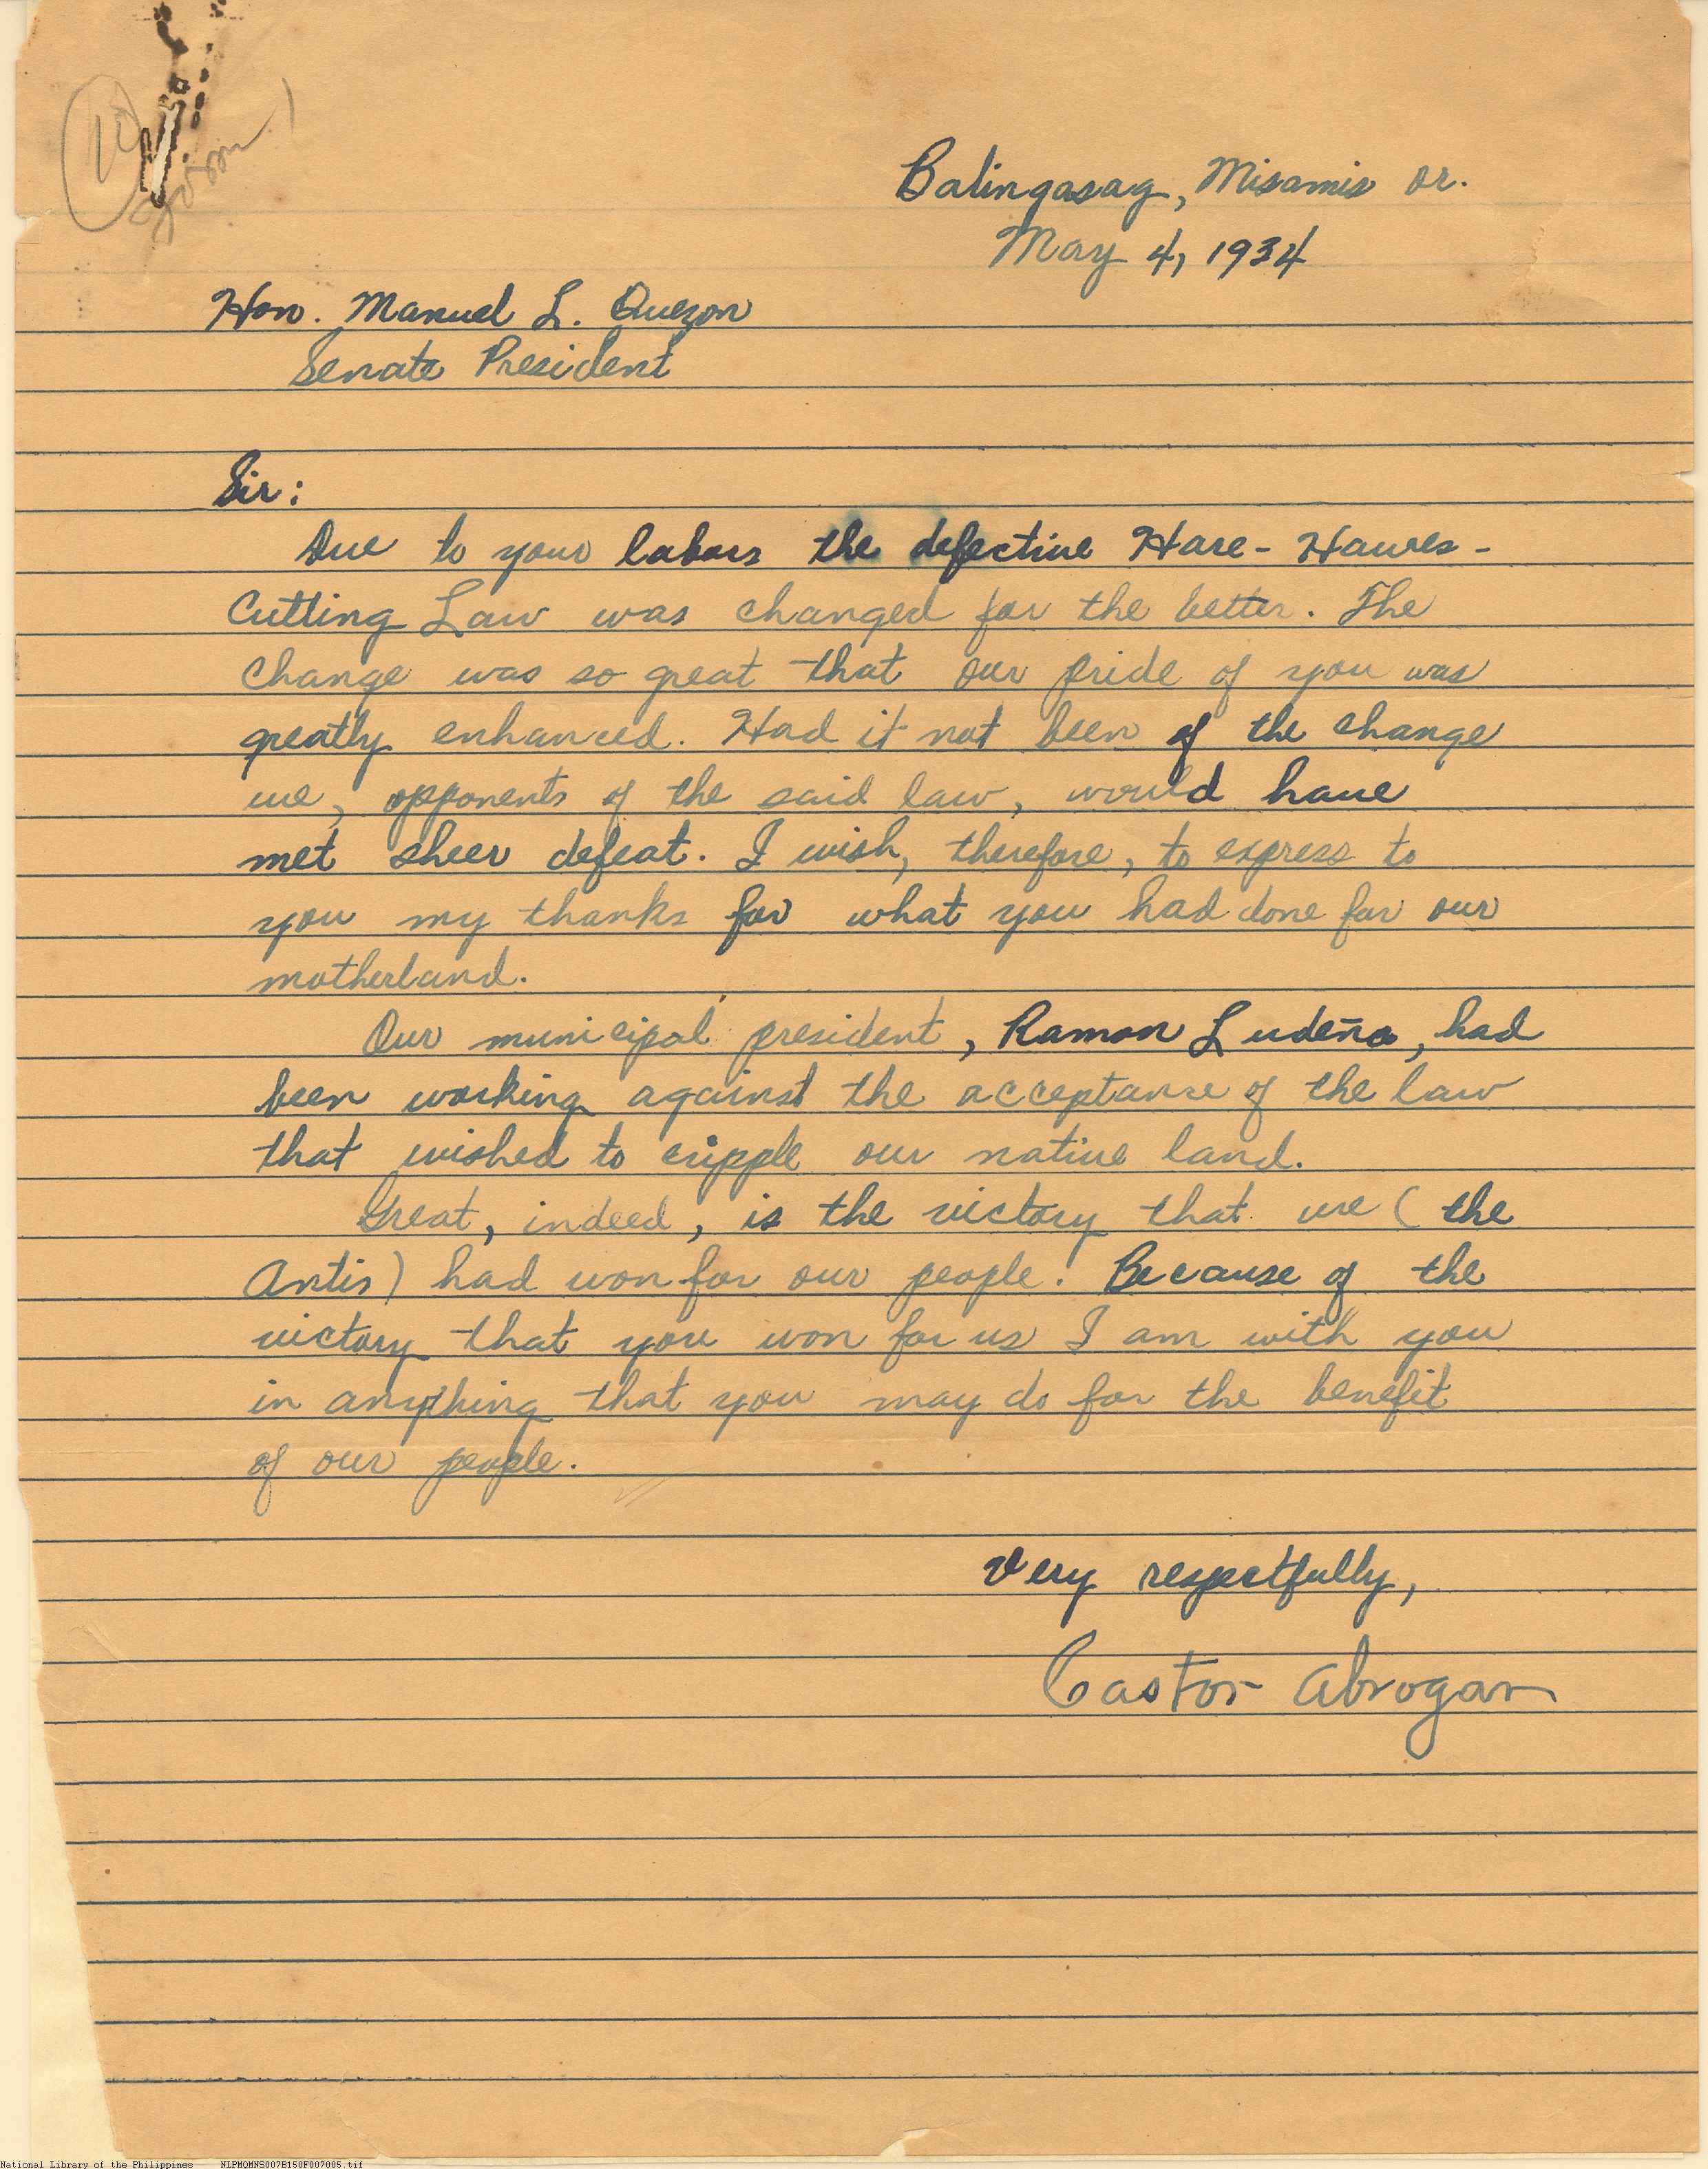 Balingasag, Misamis Or.
May 4, 1934
Hon. Manuel L. Quezon
Senate President
Sir:
Due to your labors the defective Hare-Hawes-
Cutting Law was changed for the better. The
change was so great that our pride of you was
greatly enhanced. Had it not been of the change
we, opponents of the said law, would have
met sheer defeat. I wish, therefore, to express to
you my thanks for what you had done for our
motherland.
Our municipal president, Ramon Ludeña, had
been working against the acceptance of the law
that wished to cripple our native land.
Great, indeed, is the victory that we (the
Antis) had won for our people! Because of the
victory that you won for us I am with you
in anything that you may do for the benefit
of our people.
Very respectfully,
Castor Abrogan
National Library of the Philippines NLPMQMNS007B150F007005.tif